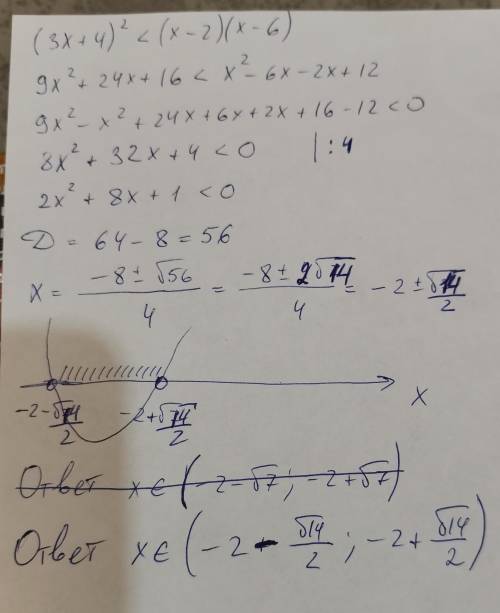 (3x+4)² < (x-2)(x-6)
9x² + 24x + 16 < x² - 6x - 2x + 12
9x² - x² + 24x + 6x + 2x + 16 - 12 < 0
8x² + 32x + 4 < 0 | : 4
2x² + 8x + 1 < 0
D = 64 - 8 = 56
x = (-8 ± √56)/4 = (-8 ± 2√14)/4 = -2 ± √14/2
x
-2-√14/2 -2+√14/2
Ответ x ∈ (-2-√7 ; -2+√7)
Ответ x ∈ (-2 - √14/2 ; -2 + √14/2)